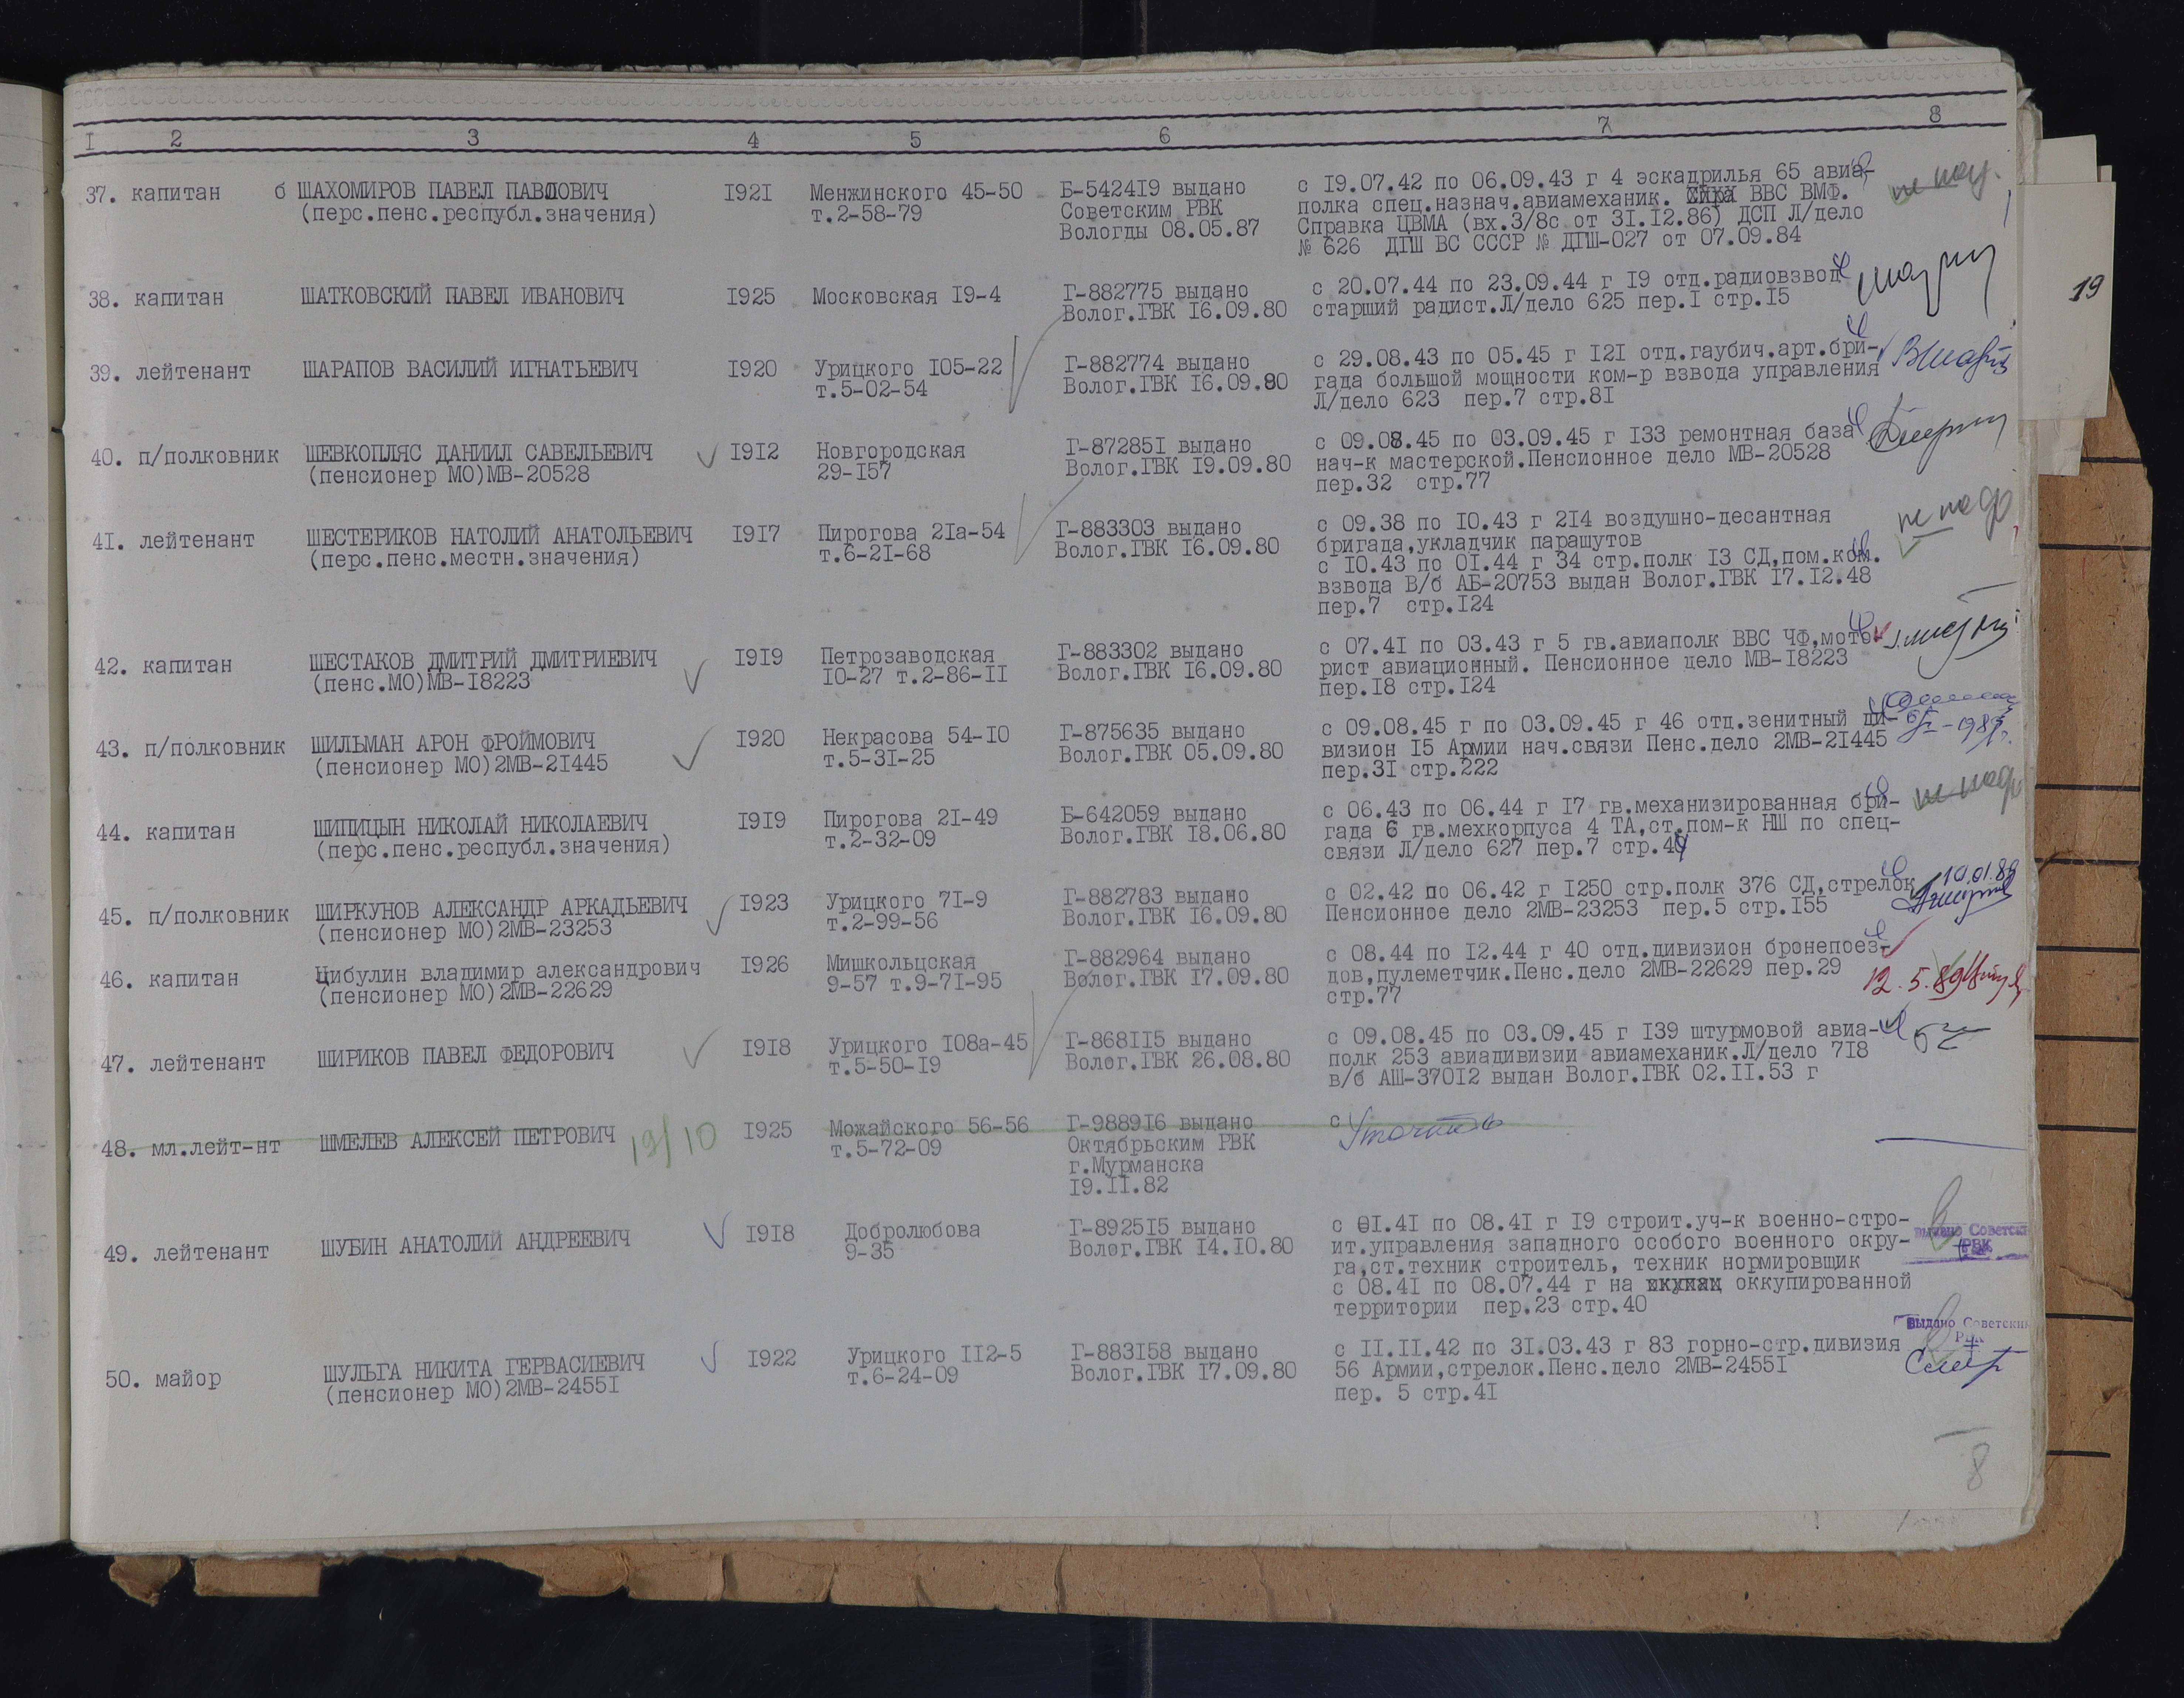 I 2 3 4 5 6 7 8
37. капитан б ШАХОМИРОВ ПАВЕЛ ПАВЛОВИЧ I92I Менжинского 45-50 Б-5424I9 выдано с I9.07.42 по 06.09.43 г 4 эскадрилья 65 авиа-
(перс.пенс.республ.значения) т.2-58-79 Советским РВК полка спец.назнач.авиамеханик. ВВС ВМФ.
Вологды 08.05.87 Справка ЦВМА (вх.3/8с от 3I.I2.86) ДСП Л/дело
№ 626 ДГШ ВС СССР № ДГШ-027 от 07.09.84
38. капитан ШАТКОВСКИЙ ПАВЕЛ ИВАНОВИЧ I925 Московская I9-4 Г-882775 выдано с 20.07.44 по 23.09.44 г I9 отд.радиовзвод
Волог.ГВК I6.09.80 старший радист.Л/дело 625 пер.I стр.I5
19
39. лейтенант ШАРАПОВ ВАСИЛИЙ ИГНАТЬЕВИЧ I920 Урицкого I05-22 Г-882774 выдано с 29.08.43 по 05.45 г I2I отд.гаубич.арт.бри-
т.5-02-54 Волог.ГВК I6.09.80 гада большой мощности ком-р взвода управления
Л/дело 623 пер.7 стр.8I
40. п/полковник ШЕВКОПЛЯС ДАНИИЛ САВЕЛЬЕВИЧ I9I2 Новгородская Г-87285I выдано с 09.08.45 по 03.09.45 г I33 ремонтная база
(пенсионер МО)МВ-20528 29-I57 Волог.ГВК I9.09.80 нач-к мастерской.Пенсионное дело МВ-20528
пер.32 стр.77
4I. лейтенант ШЕСТЕРИКОВ НАТОЛИЙ АНАТОЛЬЕВИЧ I9I7 Пирогова 2Iа-54 Г-883303 выдано с 09.38 по I0.43 г 2I4 воздушно-десантная
(перс.пенс.местн.значения) т.6-2I-68 Волог.ГВК I6.09.80 бригада,укладчик парашутов
с I0.43 по 0I.44 г 34 стр.полк I3 СД,пом.ком.
взвода В/б АБ-20753 выдан Волог.ГВК I7.I2.48
пер.7 стр.I24
42. капитан ШЕСТАКОВ ДМИТРИЙ ДМИТРИЕВИЧ I9I9 Петрозаводская Г-883302 выдано с 07.4I по 03.43 г 5 гв.авиаполк ВВС ЧФ,мото-
(пенс.МО)МВ-I8223 I0-27 т.2-86-II Волог.ГВК I6.09.80 рист авиационный. Пенсионное дело МВ-I8223
пер.I8 стр.I24
43. п/полковник ШИЛЬМАН АРОН ФРОЙМОВИЧ I920 Некрасова 54-I0 Г-875635 выдано с 09.08.45 г по 03.09.45 г 46 отд.зенитный ди-
(пенсионер МО)2МВ-2I445 т.5-3I-25 Волог.ГВК 05.09.80 визион I5 Армии нач.связи Пенс.дело 2МВ-2I445
пер.3I стр.222
44. капитан ШИПИЦЫН НИКОЛАЙ НИКОЛАЕВИЧ I9I9 Пирогова 2I-49 Б-642059 выдано с 06.43 по 06.44 г I7 гв.механизированная бри-
(перс.пенс.республ.значения) т.2-32-09 Волог.ГВК I8.06.80 гада 6 гв.мехкорпуса 4 ТА,ст.пом-к НШ по спец-
связи Л/дело 627 пер.7 стр.49
45. п/полковник ШИРКУНОВ АЛЕКСАНДР АРКАДЬЕВИЧ I923 Урицкого 7I-9 Г-882783 выдано с 02.42 по 06.42 г I250 стр.полк 376 СД,стрелок 10.01.89
(пенсионер МО)2МВ-23253 т.2-99-56 Волог.ГВК I6.09.80 Пенсионное дело 2МВ-23253 пер.5 стр.I55
46. капитан Цибулин владимир александрович I926 Мишкольцская Г-882964 выдано с 08.44 по I2.44 г 40 отд.дивизион бронепоез-
(пенсионер МО)2МВ-22629 9-57 т.9-7I-95 Волог.ГВК I7.09.80 дов,пулеметчик.Пенс.дело 2МВ-22629 пер.29 12.5.89
стр.77
47. лейтенант ШИРИКОВ ПАВЕЛ ФЕДОРОВИЧ I9I8 Урицкого I08а-45 Г-868II5 выдано с 09.08.45 по 03.09.45 г I39 штурмовой авиа-
т.5-50-I9 Волог.ГВК 26.08.80 полк 253 авиадивизии авиамеханик.Л/дело 7I8
в/б АШ-370I2 выдан Волог.ГВК 02.II.53 г
48. мл.лейт-нт ШМЕЛЕВ АЛЕКСЕЙ ПЕТРОВИЧ 19/10 I925 Можайского 56-56 Г-9889I6 выдано с Уточнить
т.5-72-09 Октябрьским РВК
г.Мурманска
I9.II.82
49. лейтенант ШУБИН АНАТОЛИЙ АНДРЕЕВИЧ I9I8 Добролюбова Г-8925I5 выдано с 0I.4I по 08.4I г I9 строит.уч-к военно-стро-
9-35 Волог.ГВК I4.I0.80 ит.управления западного особого военного окру- выдано Советским
га,ст.техник строитель, техник нормировщик РВК
с 08.4I по 08.07.44 г на оккупированной
территории пер.23 стр.40
50. майор ШУЛЬГА НИКИТА ГЕРВАСИЕВИЧ I922 Урицкого II2-5 Г-883I58 выдано с II.II.42 по 3I.03.43 г 83 горно-стр.дивизия выдано Советским
(пенсионер МО)2МВ-2455I т.6-24-09 Волог.ГВК I7.09.80 56 Армии,стрелок.Пенс.дело 2МВ-2455I РВК
пер. 5 стр.4I
8